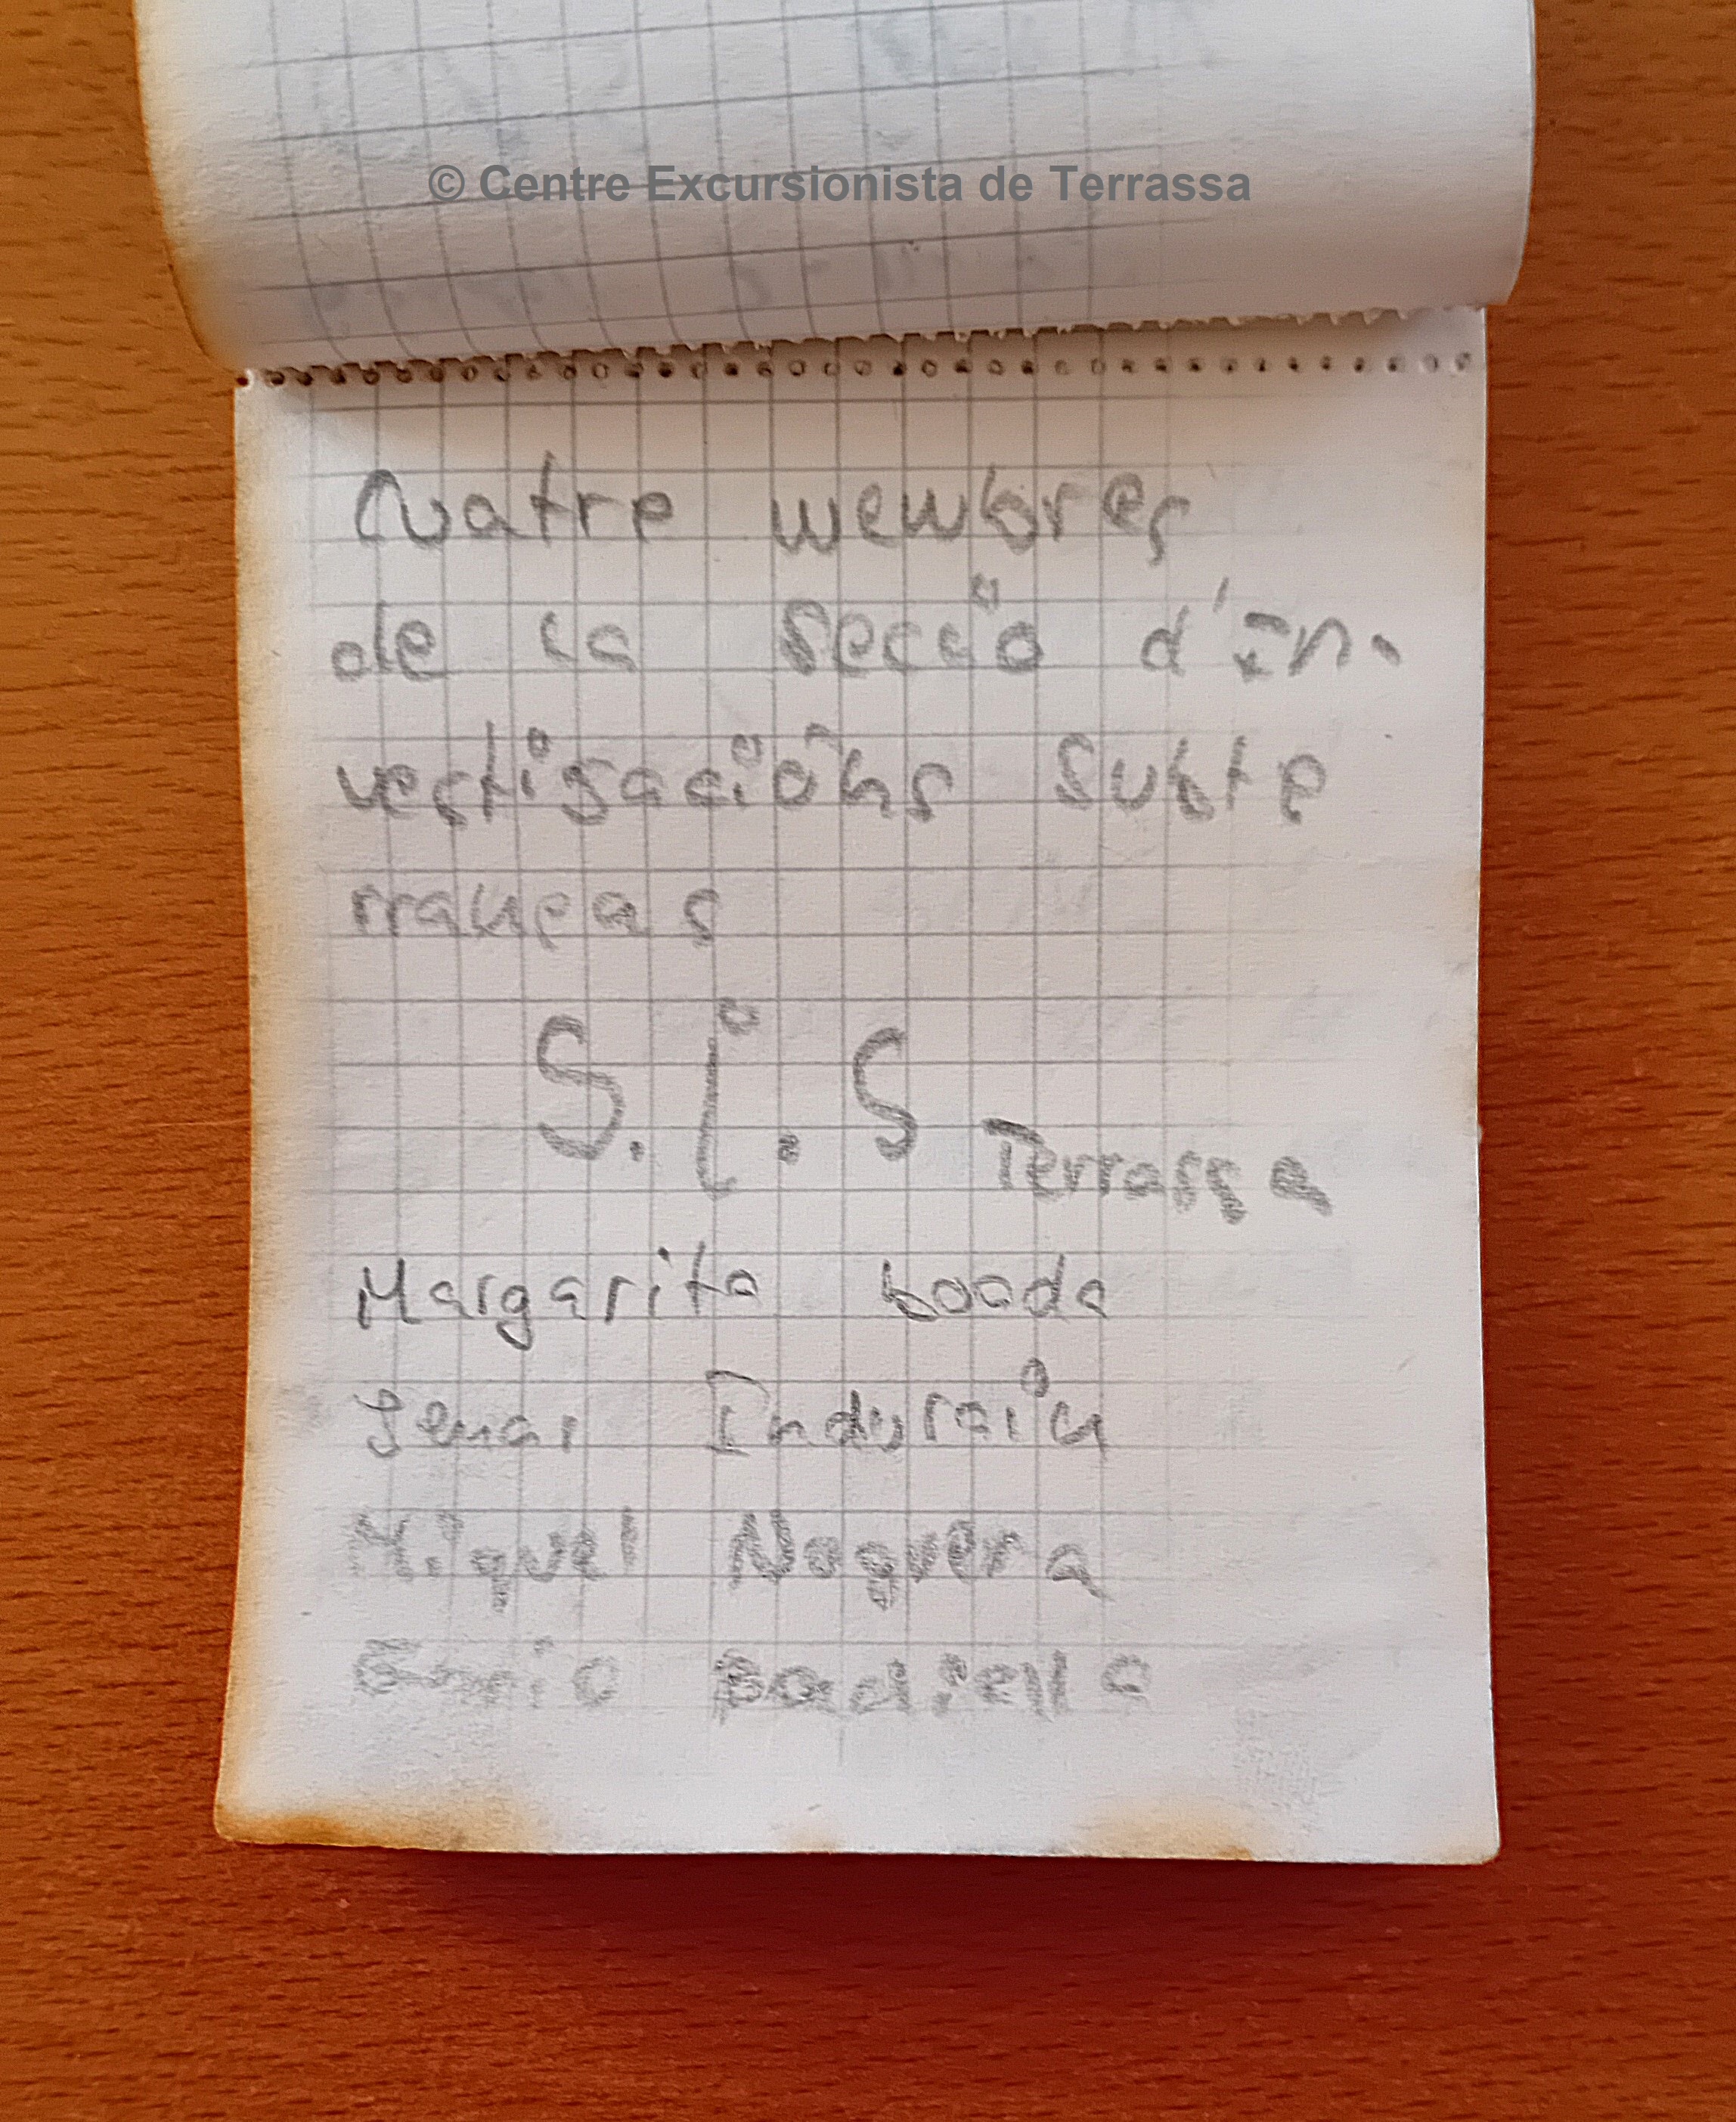 © Centre Excursionista de Terrassa
Cuatre membres
de la Secció d'in-
vestigacións Subte
rraneas
S.i.S Terrassa
Margarita booda
Indurain
Miquel Noguera
Badiella